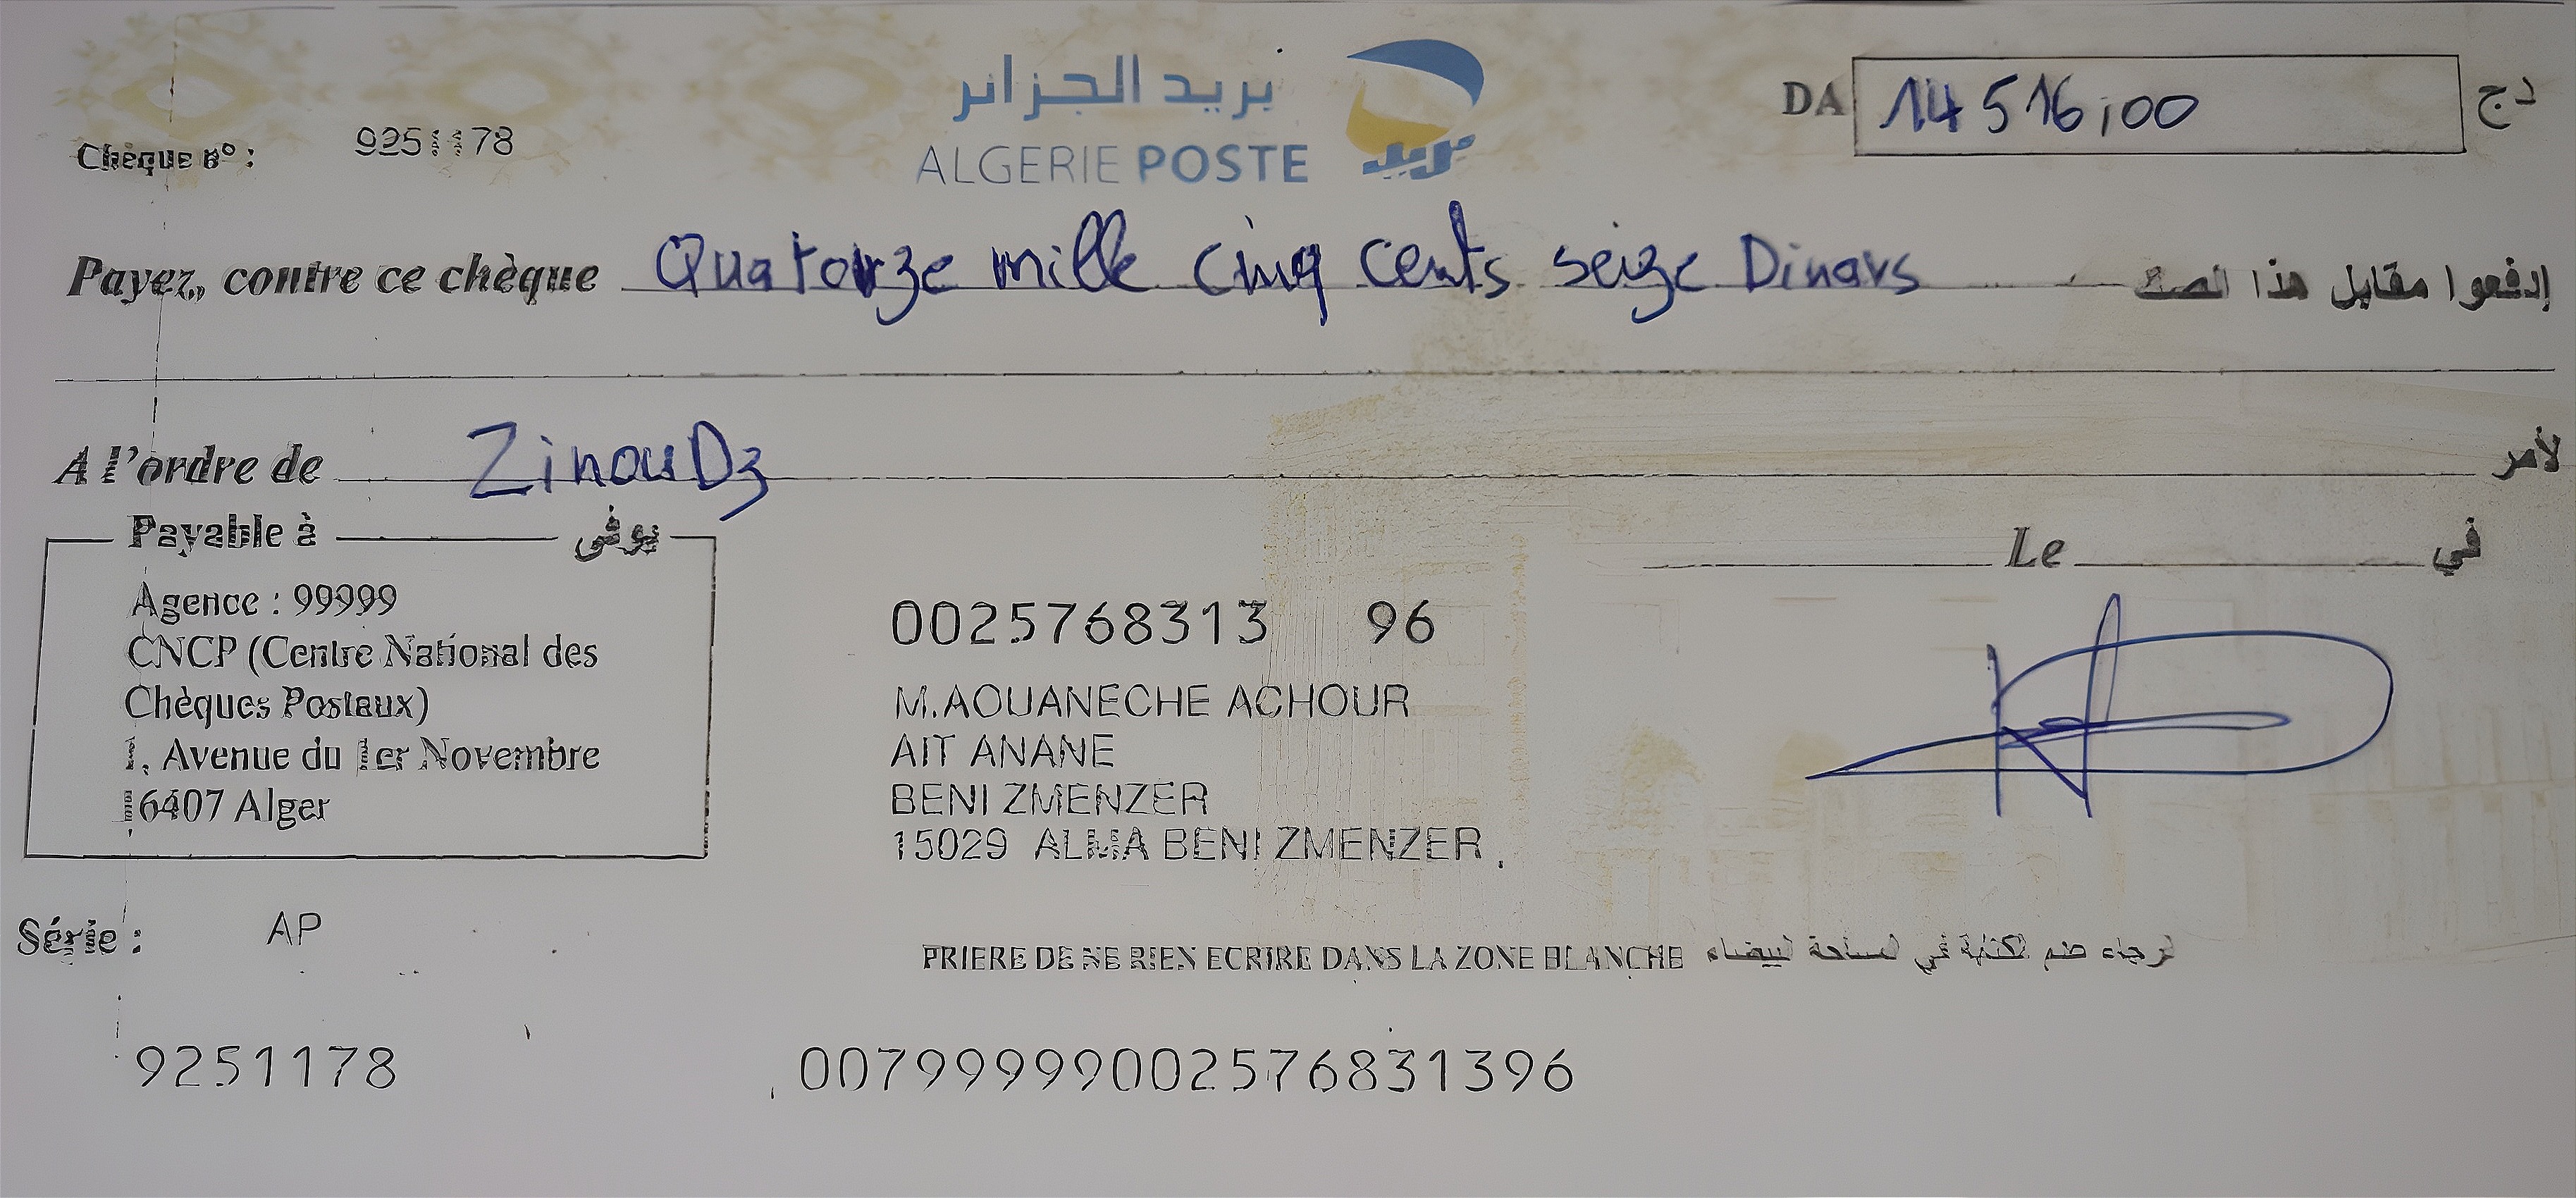 بريد الجزائر
ALGERIE POSTE
بريد
DA 14 516,00 دج
Chèque n° : 9251178
Payez, contre ce chèque Quatorze mille cinq cents seize Dinars إدفعوا مقابل هذا الصك
A l'ordre de ZinouDz لأمر
Payable à يوفى
Agence : 99999
CNCP (Centre National des
Chèques Postaux)
1, Avenue du 1er Novembre
16407 Alger
Le في
0025768313 96
M.AOUANECHE ACHOUR
AIT ANANE
BENI ZMENZER
15029 ALMA BENI ZMENZER
Série : AP
PRIERE DE NE RIEN ECRIRE DANS LA ZONE BLANCHE الرجاء عدم الكتابة في المساحة البيضاء
9251178 00799999002576831396